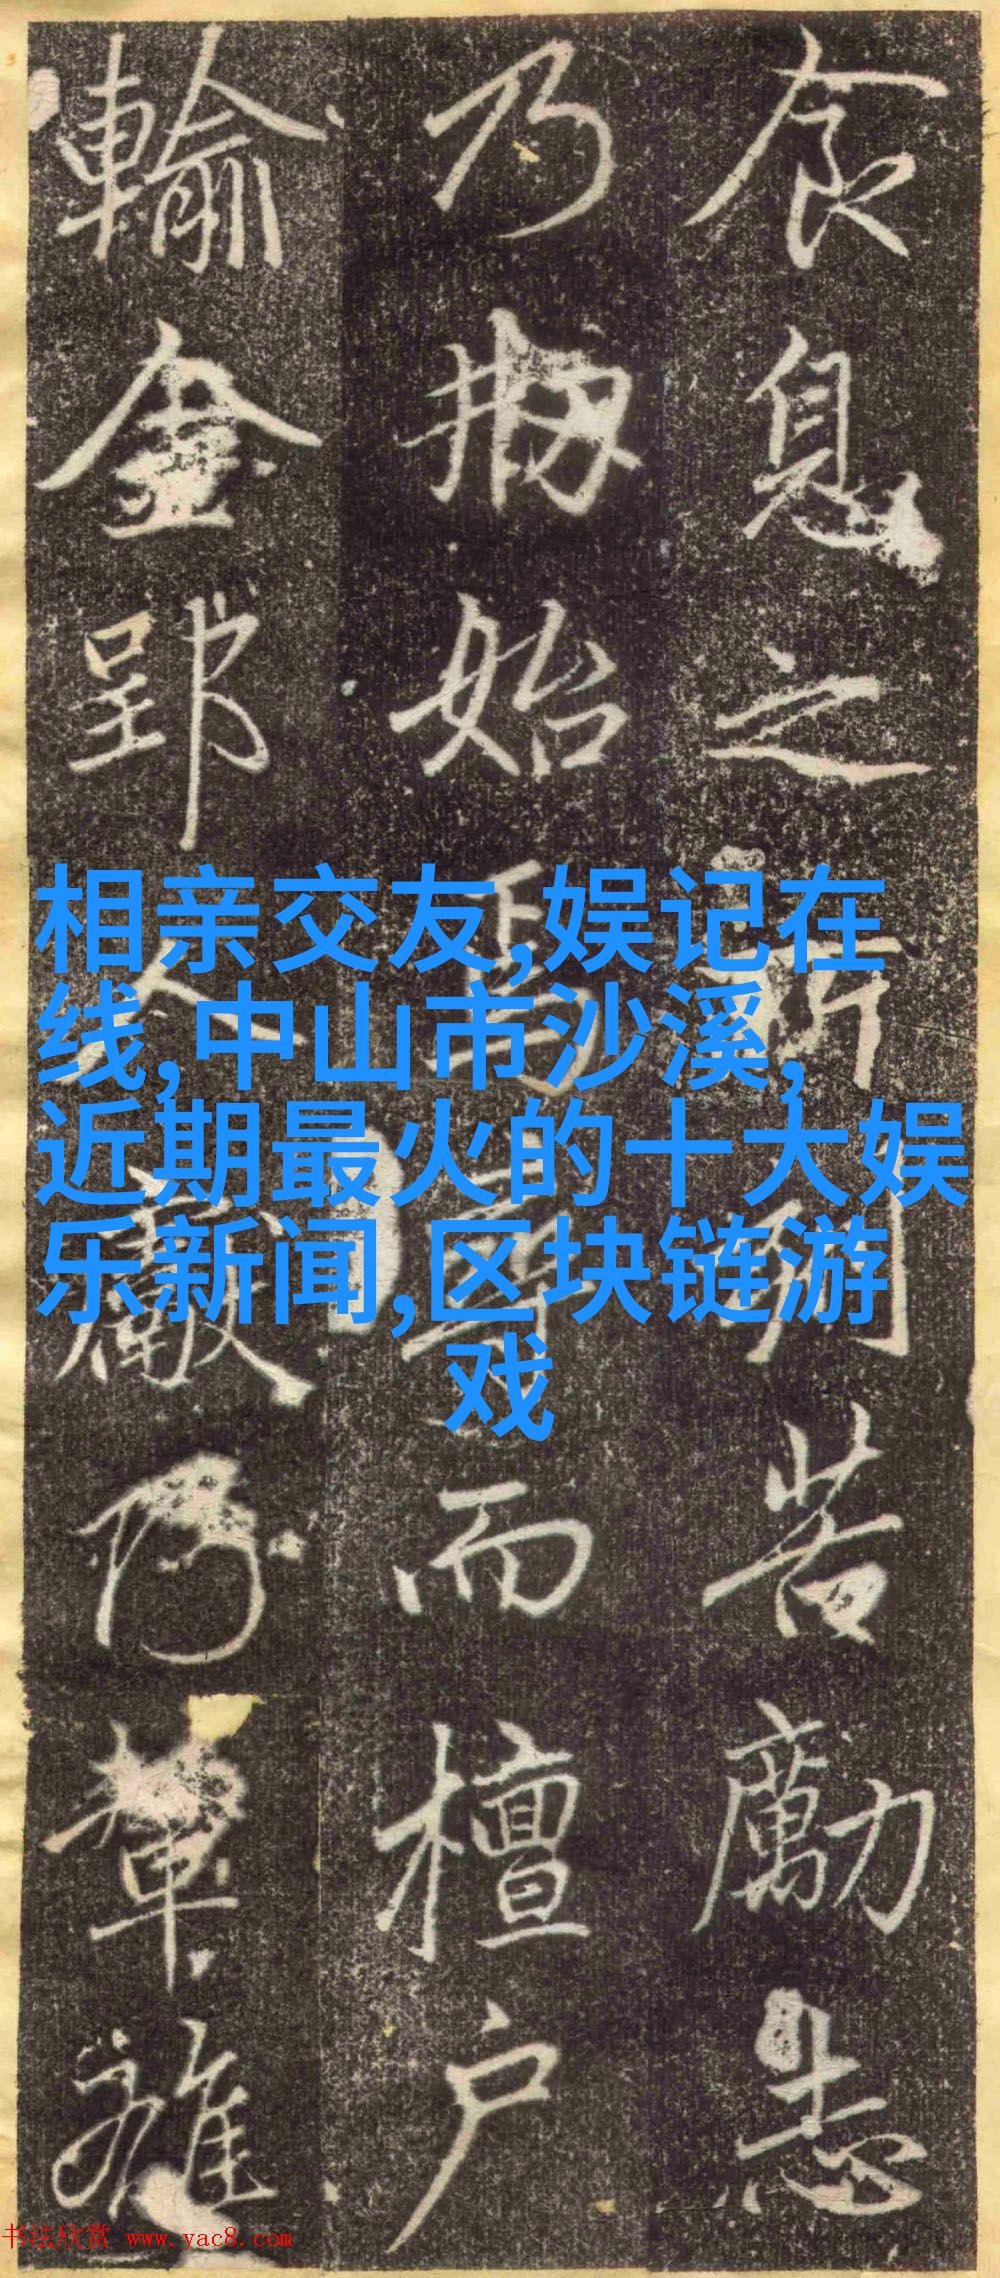 食息之所苦勵志
乃始而檀户
輸金郢人輩雖
相亲交友,娱记在
线,中山市沙溪,
近期最火的十大娱
乐新闻,区块链游
戏
书法欣赏 www.yac8.com